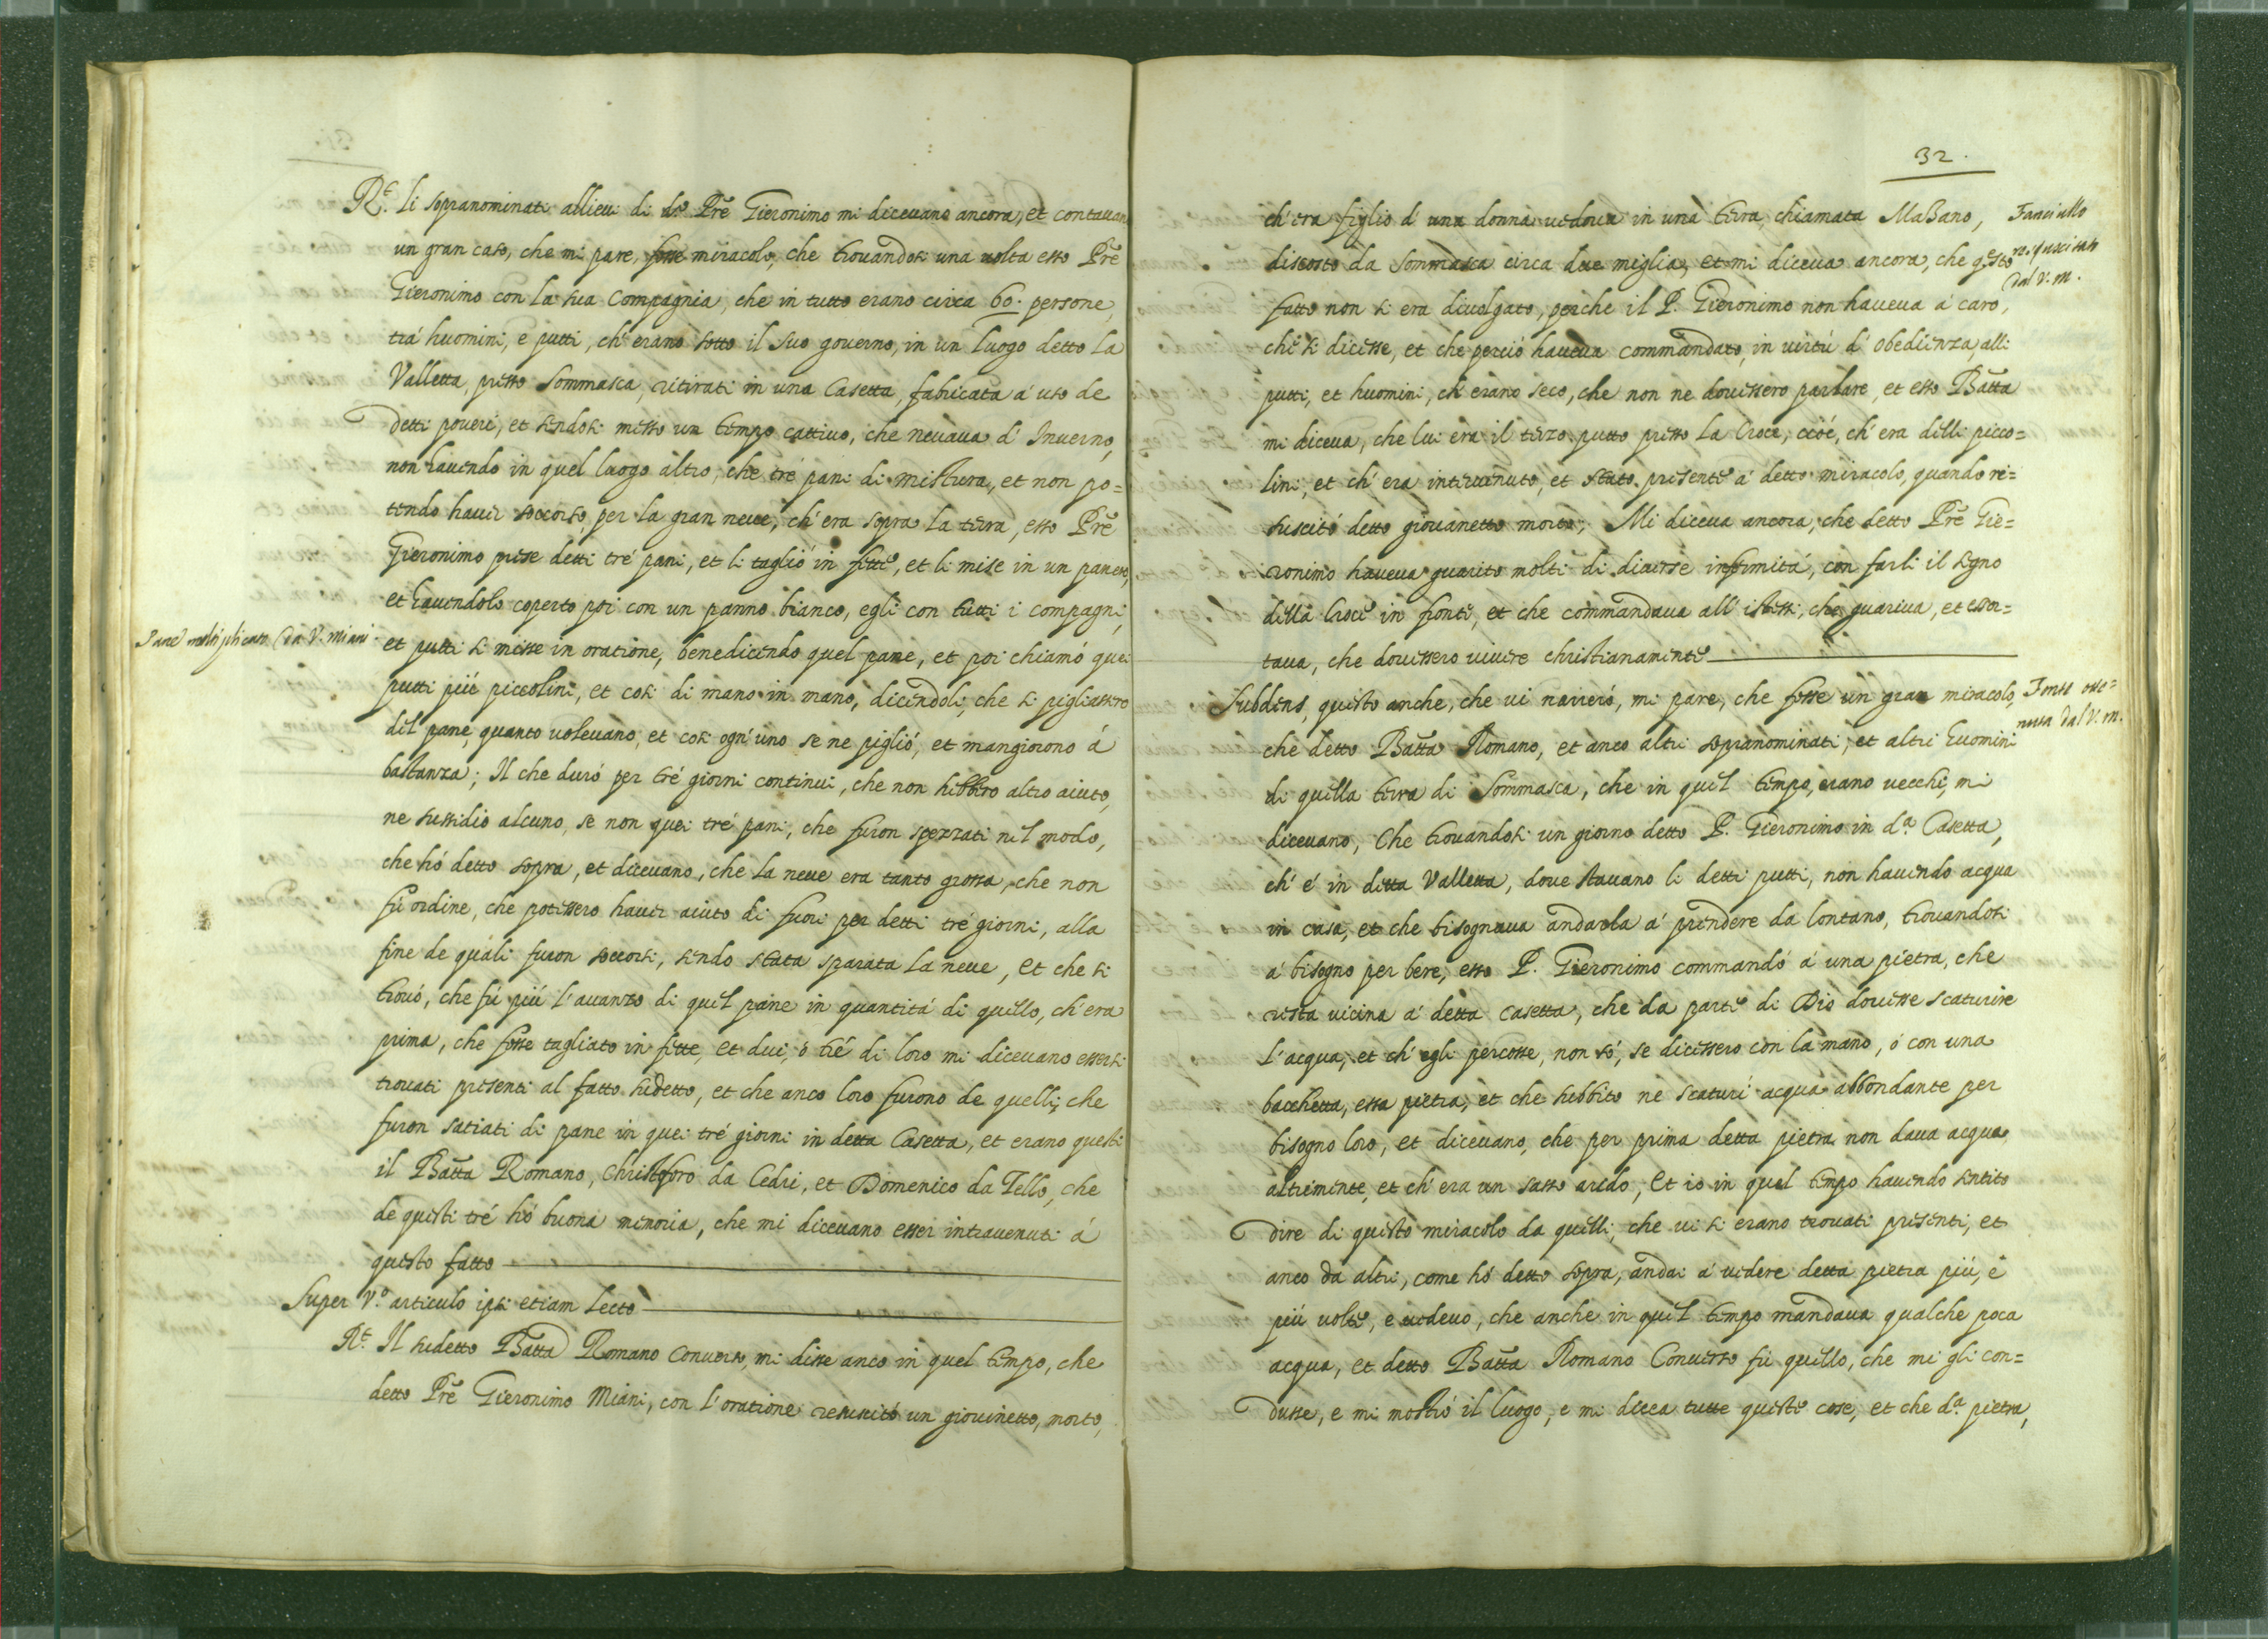 R.t Li sopranominati allieui di d.o Prē Gieronimo mi diceuano ancora, et contauan
un gran caso, che mi pare, fosse miracolo, che trouandosi una uolta esso Prē
Gieronimo con la sua Compagnia, che in tutto erano circa 60. persone,
trá huomini, e putti, ch'erano sotto il suo gouerno, in un luogo detto la
Valletta, presso Sommasca, ritirati in una Casetta, fabricata á uso de
detti poueri, et sendosi messo un tempo cattiuo, che neuaua d'Inuerno,
non hauendo in quel luogo altro, che tré pani di mistura, et non po=
tendo hauer soccorso, per la gran neue, ch'era sopra la terra, esso Prē
Gieronimo prese detti tré pani, et li taglió in fette, et li mise in un panero,
et hauendolo coperto poi con un panno bianco, egli con tutti i compagni,
Pane moltiplicato da V. Miani
et putti si misse in oratione, benedicendo quel pane, et poi chiamó quei
putti piú piccolini, et cosi di mano in mano, dicendoli, che si pigliassero
del pane, quanto uoleuano, et cosi ogn'uno se ne piglió, et mangiorono á
bastanza; Il che duró per tré giorni continui, che non hebbero altro aiuto,
ne sussidio alcuno, se non quei tré pani, che furon spezzati nel modo,
che hó detto sopra, et diceuano, che la neue era tanto grossa, che non
fú ordine, che potessero hauer aiuto di fuori per detti tré giorni, alla
fine de quali furon soccorsi, sendo stata sparata la neue, et che si
trouó, che fú piú l'auanzo di quel pane in quantitá di quello, ch'era
prima, che fosse tagliato in fette, et dui, ó tré di loro mi diceuano essersi
trouati presenti al fatto sudetto, et che anco loro furono de quelli, che
furon satiati di pane in quei tré giorni in detta Casetta, et erano questi
il Batta Romano, Christoforo da Cedri, et Domenico da Tello, che
de questi tré hó buona memoria, che mi diceuano esser intrauenuti á
questo fatto
Super V.o articulo ipsi etiam lecto
R.t Il sudetto Batta Romano Conuerso, mi disse anco in quel tempo, che
detto Prē Gieronimo Miani, con l'oratione resuscitó un giouinetto, morto,
32.
ch'era figlio d'una donna uedoua in una terra, chiamata Massano,
Fanciullo
resusscitato
dal V. M.
discosto da Sommasca circa due miglia, et mi diceua ancora, che q.esto
fatto non si era diuolgato, perche il P. Gieronimo non haueua á caro,
che si dicesse, et che perció haueua commandato, in uirtú d'obedienza, alli
putti, et huomini, ch'erano seco, che non ne douessero parlare, et esso Batta
mi diceua, che lui era il terzo putto presso la Croce, cioé, ch'era delli picco=
lini, et ch'era interuenuto, et stato presente á detto miracolo, quando re=
suscitó detto giouanetto morto; Mi diceua ancora, che detto Prē Gie=
ronimo haueua guarito molti di diuerse infirmitá, con farli il segno
della Croce in fronte, et che commandaua all'istessi, che guariua, et essor=
taua, che douessero uiuere christianamente
Subdens, questo anche, che ui narreró, mi pare, che fosse un gran miracolo,
Fonte otte=
nuta dal V. M.
che detto Batta Romano, et anco altri sopranominati, et altri huomini
di quella terra di Sommasca, che in quel tempo, erano uecchi, mi
diceuano, Che trouandosi un giorno detto P. Gieronimo in d.a Casetta,
ch'é in detta Valletta, doue stauano li detti putti, non hauendo acqua
in casa, et che bisognaua andarla á prendere da lontano, trouandosi
á bisogno per bere, esso P. Gieronimo commandó á una pietra, che
resta uicina á detta Casetta, che da parte di Dio douesse scaturire
l'acqua, et ch'egli percosse, non só, se dicessero con la mano, ó con una
bacchetta, essa pietra, et che subbito ne scaturí acqua abbondante per
bisogno loro, et diceuano, che per prima detta pietra non daua acqua
altrimente, et ch'era un sasso arido, Et io in quel tempo hauendo sentito
dire di questo miracolo da quelli, che ui si erano trouati presenti, et
anco da altri, come hó detto sopra, andai á uedere detta pietra piú, e
piú uolte, e uedeuo, che anche in quel tempo mandaua qualche poca
acqua, et detto Batta Romano Conuerso fú quello, che mi gli con=
dusse, e mi mostró il luogo, e mi dicea tutte queste cose, et che d.a pietra,